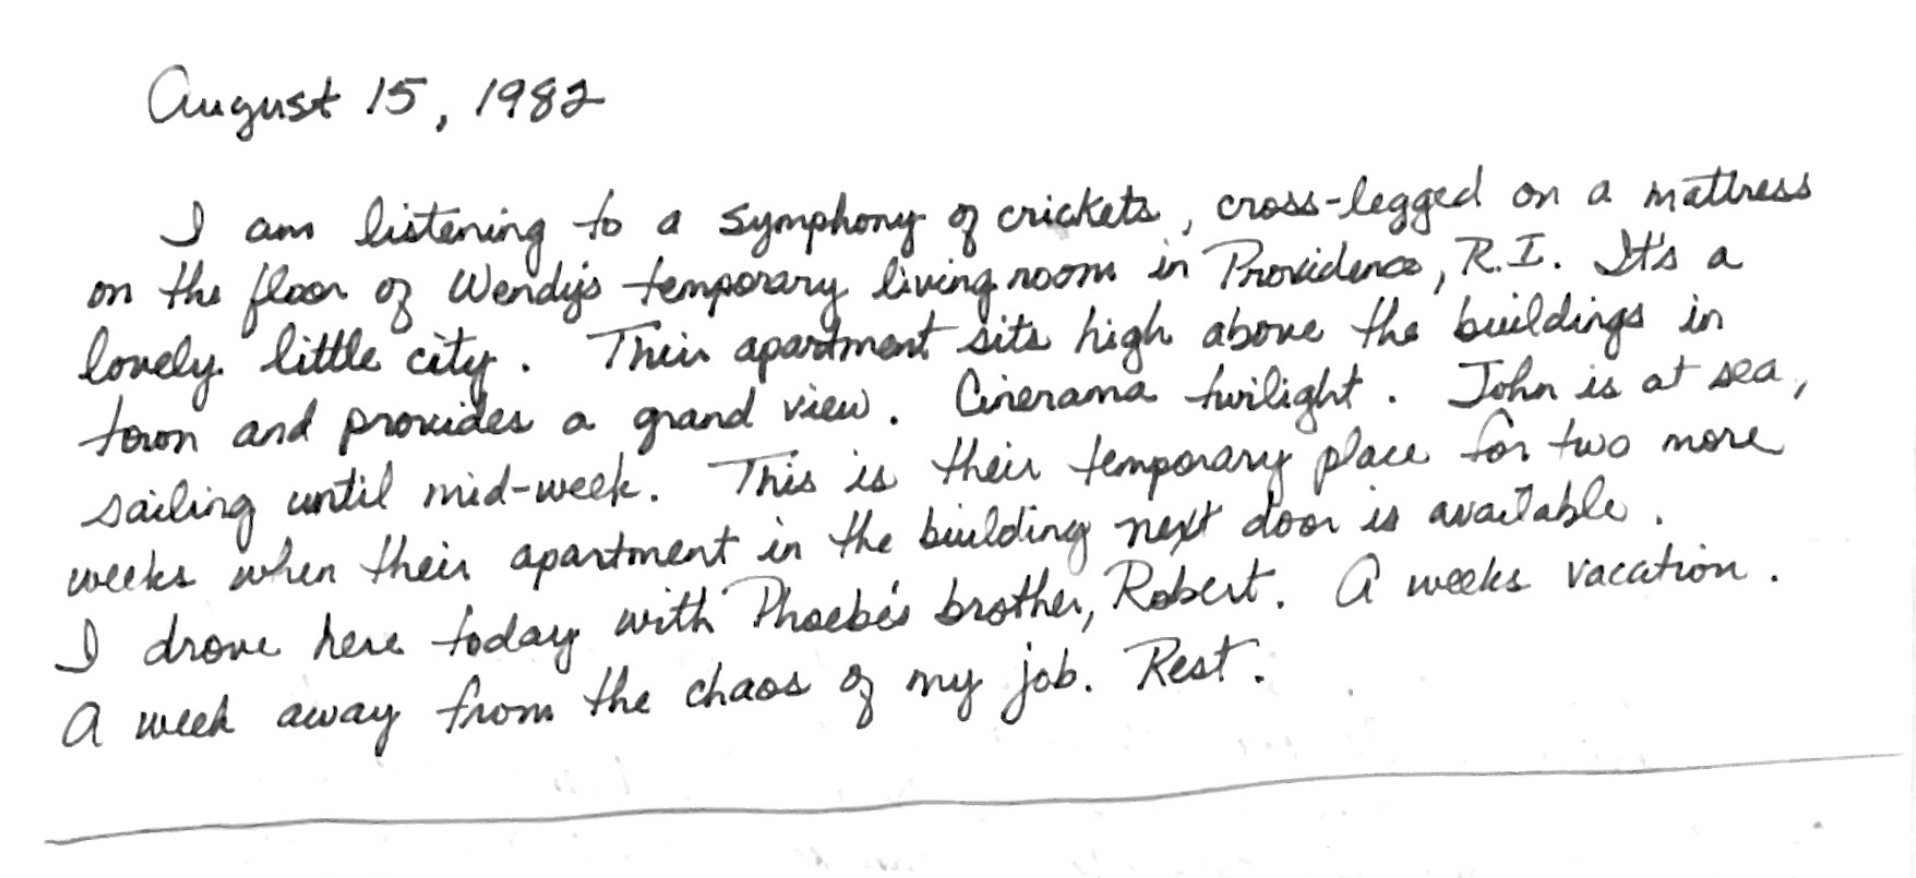 August 15, 1982
I am listening to a symphony of crickets, cross-legged on a mattress
on the floor of Wendy's temporary living room in Providence, R.I. It's a
lovely little city. Their apartment sits high above the buildings in
town and provides a grand view. Cinerama twilight. John is at sea,
sailing until mid-week. This is their temporary place for two more
weeks when their apartment in the building next door is available.
I drove here today with Phoebe's brother, Robert. A weeks vacation.
A week away from the chaos of my job. Rest.